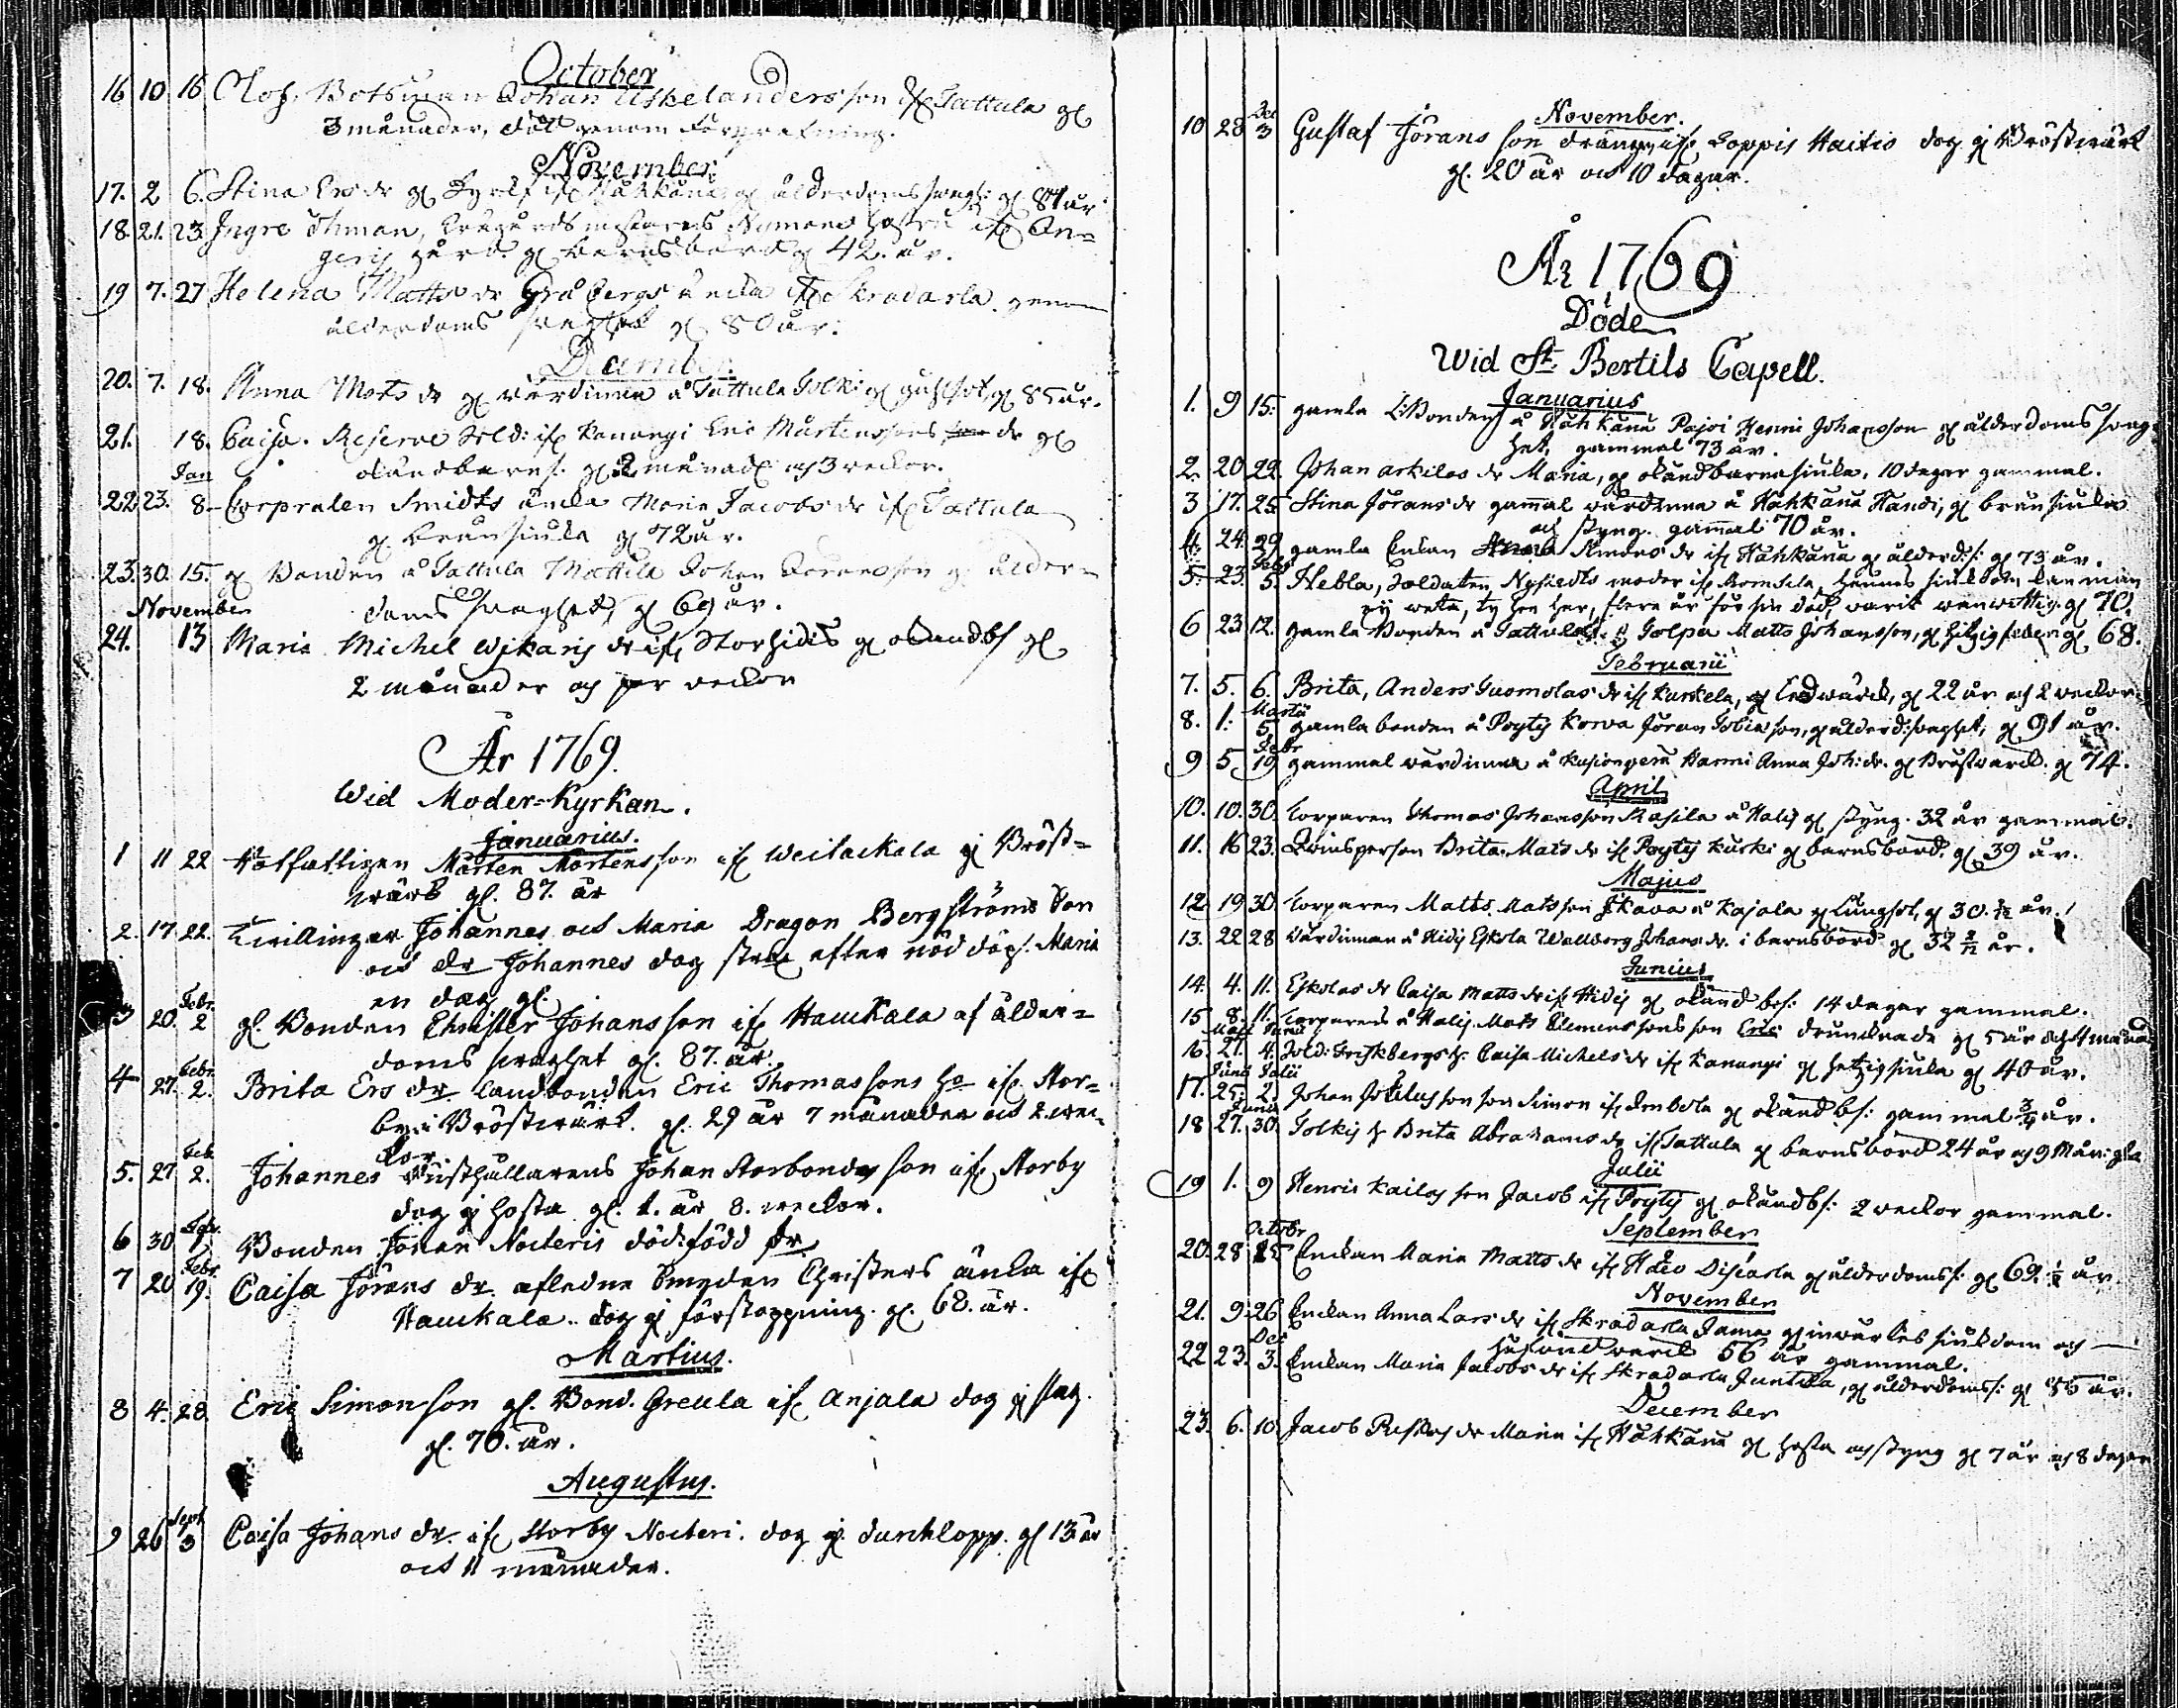 October
16 10 16 Olof, Botsman Johan Eskelanders son if: Tattula gl
3 månader, död genom
November
17. 2 6. Stina Ers dr gl if: Nähkänä gl ålderdoms svagh: gl 84 år
18. 21. 23 Ingre Öhman, Nymans hustru if:
gård. gl barnsbörd gl 42. år.
19 7. 27 Helena Matts dr Gråbergs änka if: Skradarla. genom
ålderdoms svaghet gl 80 år.
December.
20. 7. 18. Anna Mats dr gl värdinna å Tattula Tolki gl gl 85 år.
21. 18. Caisa. Reserve Sold: if: Kanangi Eric Mårtenssons dr gl
Jan okänd barns: gl. 2 månad: och 3 veckor.
22 23. 8. Corpralen Smidts änka Maria Jacobs dr if: Tattula
gl bränsjuka gl 72 år.
23. 30. 15. gl Bonden å Tattula Mattila Johan son gl ålder=
November doms svaghet, gl 69 år.
24. 13 Maria Michel Wikaris dr if: Storhidis gl okändbs gl
2 månader och par veckor
År 1769.
Wid Moder=Kyrkan.
Januarius.
1 11 22 Rotfattigen Mårten Mårtensson if: Weitackala gl Bröst=
värk gl. 87. år
2. 17. 22. Twillingar Johannes och Maria Dragon Bergströms Son
och dr Johannes dog strax efter nöd döp. Maria
en dag gl.
3 20. Febr. 2 gl. Bonden Christer Johansson if: Hauckala af ålder=
doms svaghet gl. 87. år.
4 27. Febr. 2. Brita Ers dr landbonden Eric Thomassons ho if: Stor=
by i Bröstvärk. gl. 29 år 7 månader och 2 wec=
kor.
5. 27 Feb 2. Johannes Rusthållarens Johan Storbondes son if: Storby
dog gl hosta gl. 1. år 8. weckor.
6 30 Febr. 1. Bonden Johan Nocteris dödfödd dr
7 20 Febr. 19. Caisa Jörans dr afledne Smeden Christers änka if:
Hauckala. dog gl förstoppning. gl. 68. år.
Martius.
8 4. 28 Eric Simonson gl. Bond. Greula if: Anjala dog gl slag.
gl. 70. år.
Augustus.
9 26 Sept 3 Caisa Johans dr if: Storby Nocteri. dog gl. durchlopp. gl 13 år
och 11 månader.
November.
10 28 Dec 3 Gustaf Jörans son dräng, if: Loppis Haitis dog gl Bröstvärk
gl. 20 år och 10 dagar.
År 1769
Döde
Wid St. Bertils Capell.
Januarius
1. 9 15. gamla Bonden å Nähkänä Pajoi Henric Johansson gl ålderdoms svag=
het, gammal 73 år.
2. 20 22. Johan Arkilas dr Maria, gl okänd barnasjuka, 10 dagar gammal.
3 17. 25 Stina Jörans dr gammal värdinna å Nähkänä Handi, gl bränsjuka
och styng. gammal 70 år.
4. 24. 29 gamla Enkan Anders dr if: Nähkänä gl ålderd: s: gl 73 år.
5. 23. Febr 5. Hebla, Soldaten Nystedts moder if: hännes sjukdom kan man
ej weta, ty hon har, flere år för sin död, varit wanwettig. gl 70.
6 23 12. gamla Bonden å Tattula Tolpa Matts Johansson, gl hitzig feber gl 68.
Februarii
7. 5. 6. Brita, Anders Tuomolas dr if: Kurkela, gl Ledwärck, gl 22 år och 2 weckor.
8. 1. Martii 5 gamla bonden å Poyty Korva Jöran Tobiasson, gl ålderd: svaghet, gl 91 år.
9 5 Febr 19 gammal värdinna å Hanni Anna Joh: dr. gl Bröstvärck. gl 74.
April
10. 10. 30. Torparen Thomas Johansson Rasila å Halis gl styng. 32 år gammal.
11. 16 23. Qvinsperson Brita Mats dr if: Poyty Kuski gl barnsbörd. gl 39 år.
Majus
12 19 30. Torparen Matts Matsson Skava å Kajala gl lungsot, gl 30. år.
13. 22 28 Värdinnan å Hidis Eskola Wallborg Johans dr. i barnsbörd gl 32 2/12 år.
Junius
14. 4. 11. Eskolas dr Caisa Matts dr if: Hidis gl okänd brs: 14 dagar gammal.
15 8. 11. Torparens å Halis Mats Clemenssons son Eric drunknade gl 5 år och 4 månad
16. Maii 27. Junii 4. Sold: Friskbergs h: Caisa Michels dr if: Kanangi gl hetzigsjuka gl 40 år.
17. Junii 25. Julii 2. Johan son son Simon if: gl okänd bs: gammal 3/4 år.
18 27. Junii 30. Tolkis h: Brita Abrahams dr if: Tattula gl barnsbörd 24 år och 9 mån: gla
Julii
19 1. 9 Henric Kailas son Jacob if: Poyty gl okändbs: 2 veckor gammal.
September
20. 28 Octobr 15 Enckan Maria Matts dr if: Disicala gl ålderdoms s: gl 69. 1/2 år.
November
21. 9. 26 Enckan Anna Lars dr if: Skradarla Jama gl invärtes sjukdom och
hufvudvärck 56 år gammal.
22 23. Dec 3. Enckan Maria Jacobs dr if: Skradarla Junttila, gl ålderdoms s: gl 85 år.
December
23. 6. 10. Jacob dr Maria if: Nähkänä gl hosta och styng gl 7 år och 8 dagar